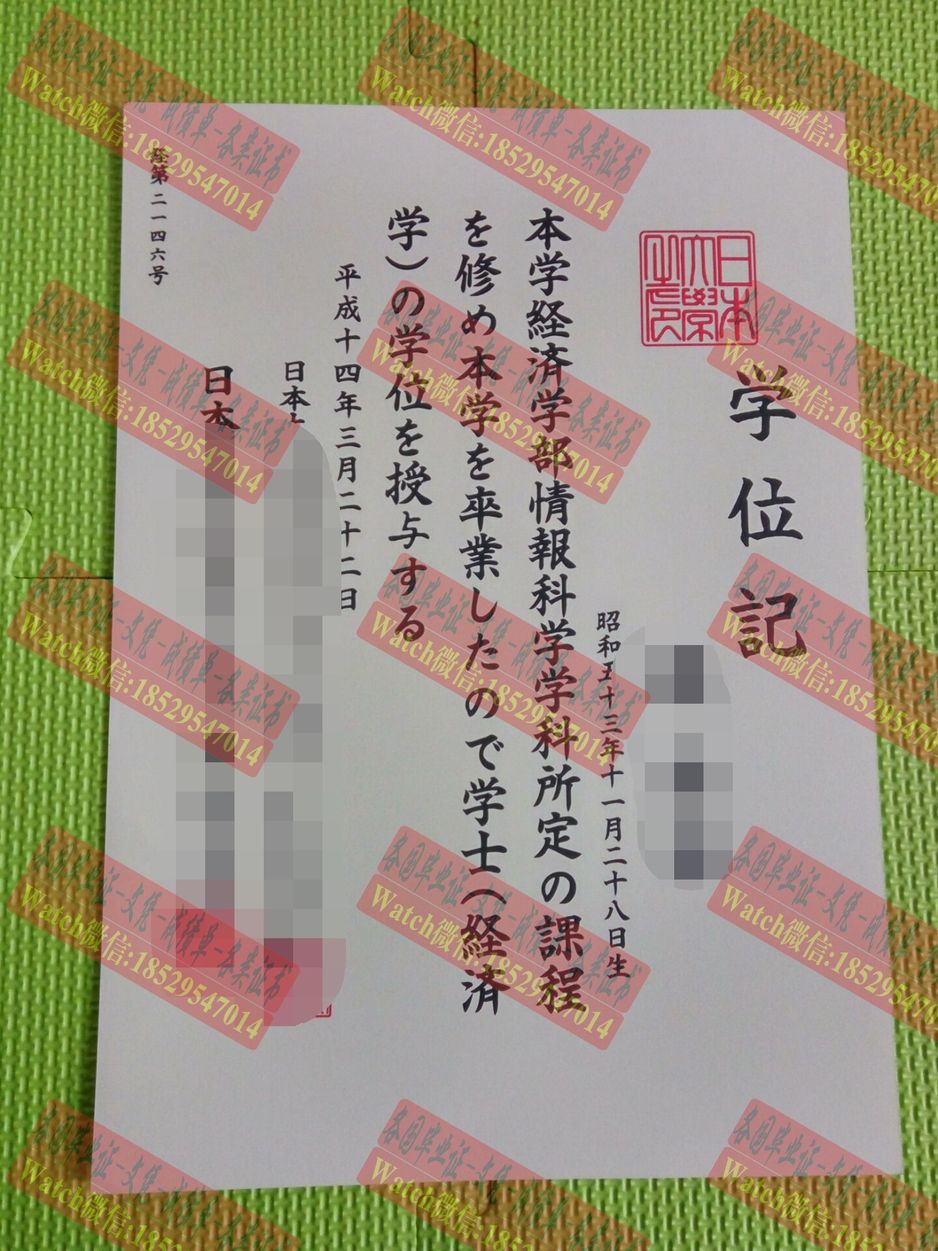 日本
大學
之印
学位記
昭和五十三年十一月二十八日生
本学経済学部情報科学学科所定の課程
を修め本学を卒業したので学士（経済
学）の学位を授与する
平成十四年三月二十二日
日本
日本
経第二一四六号
各国毕业证-文凭-成绩单-各类证书
Watch微信:18529547014